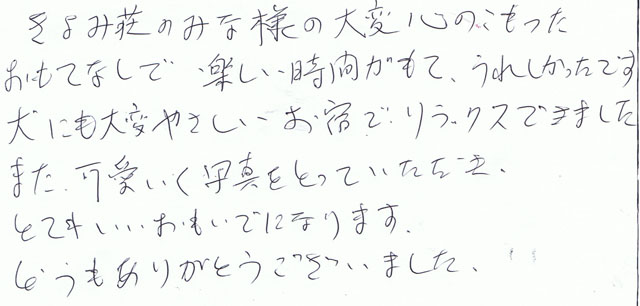 きよみ荘のみな様の大変心のこもった
おもてなしで 楽しい時間がもて、うれしかったです
犬にも大変やさしいお宿で リラックスできました
また、可愛いく写真をとっていただき、
とてもいいおもいでになります。
どうもありがとうございました、